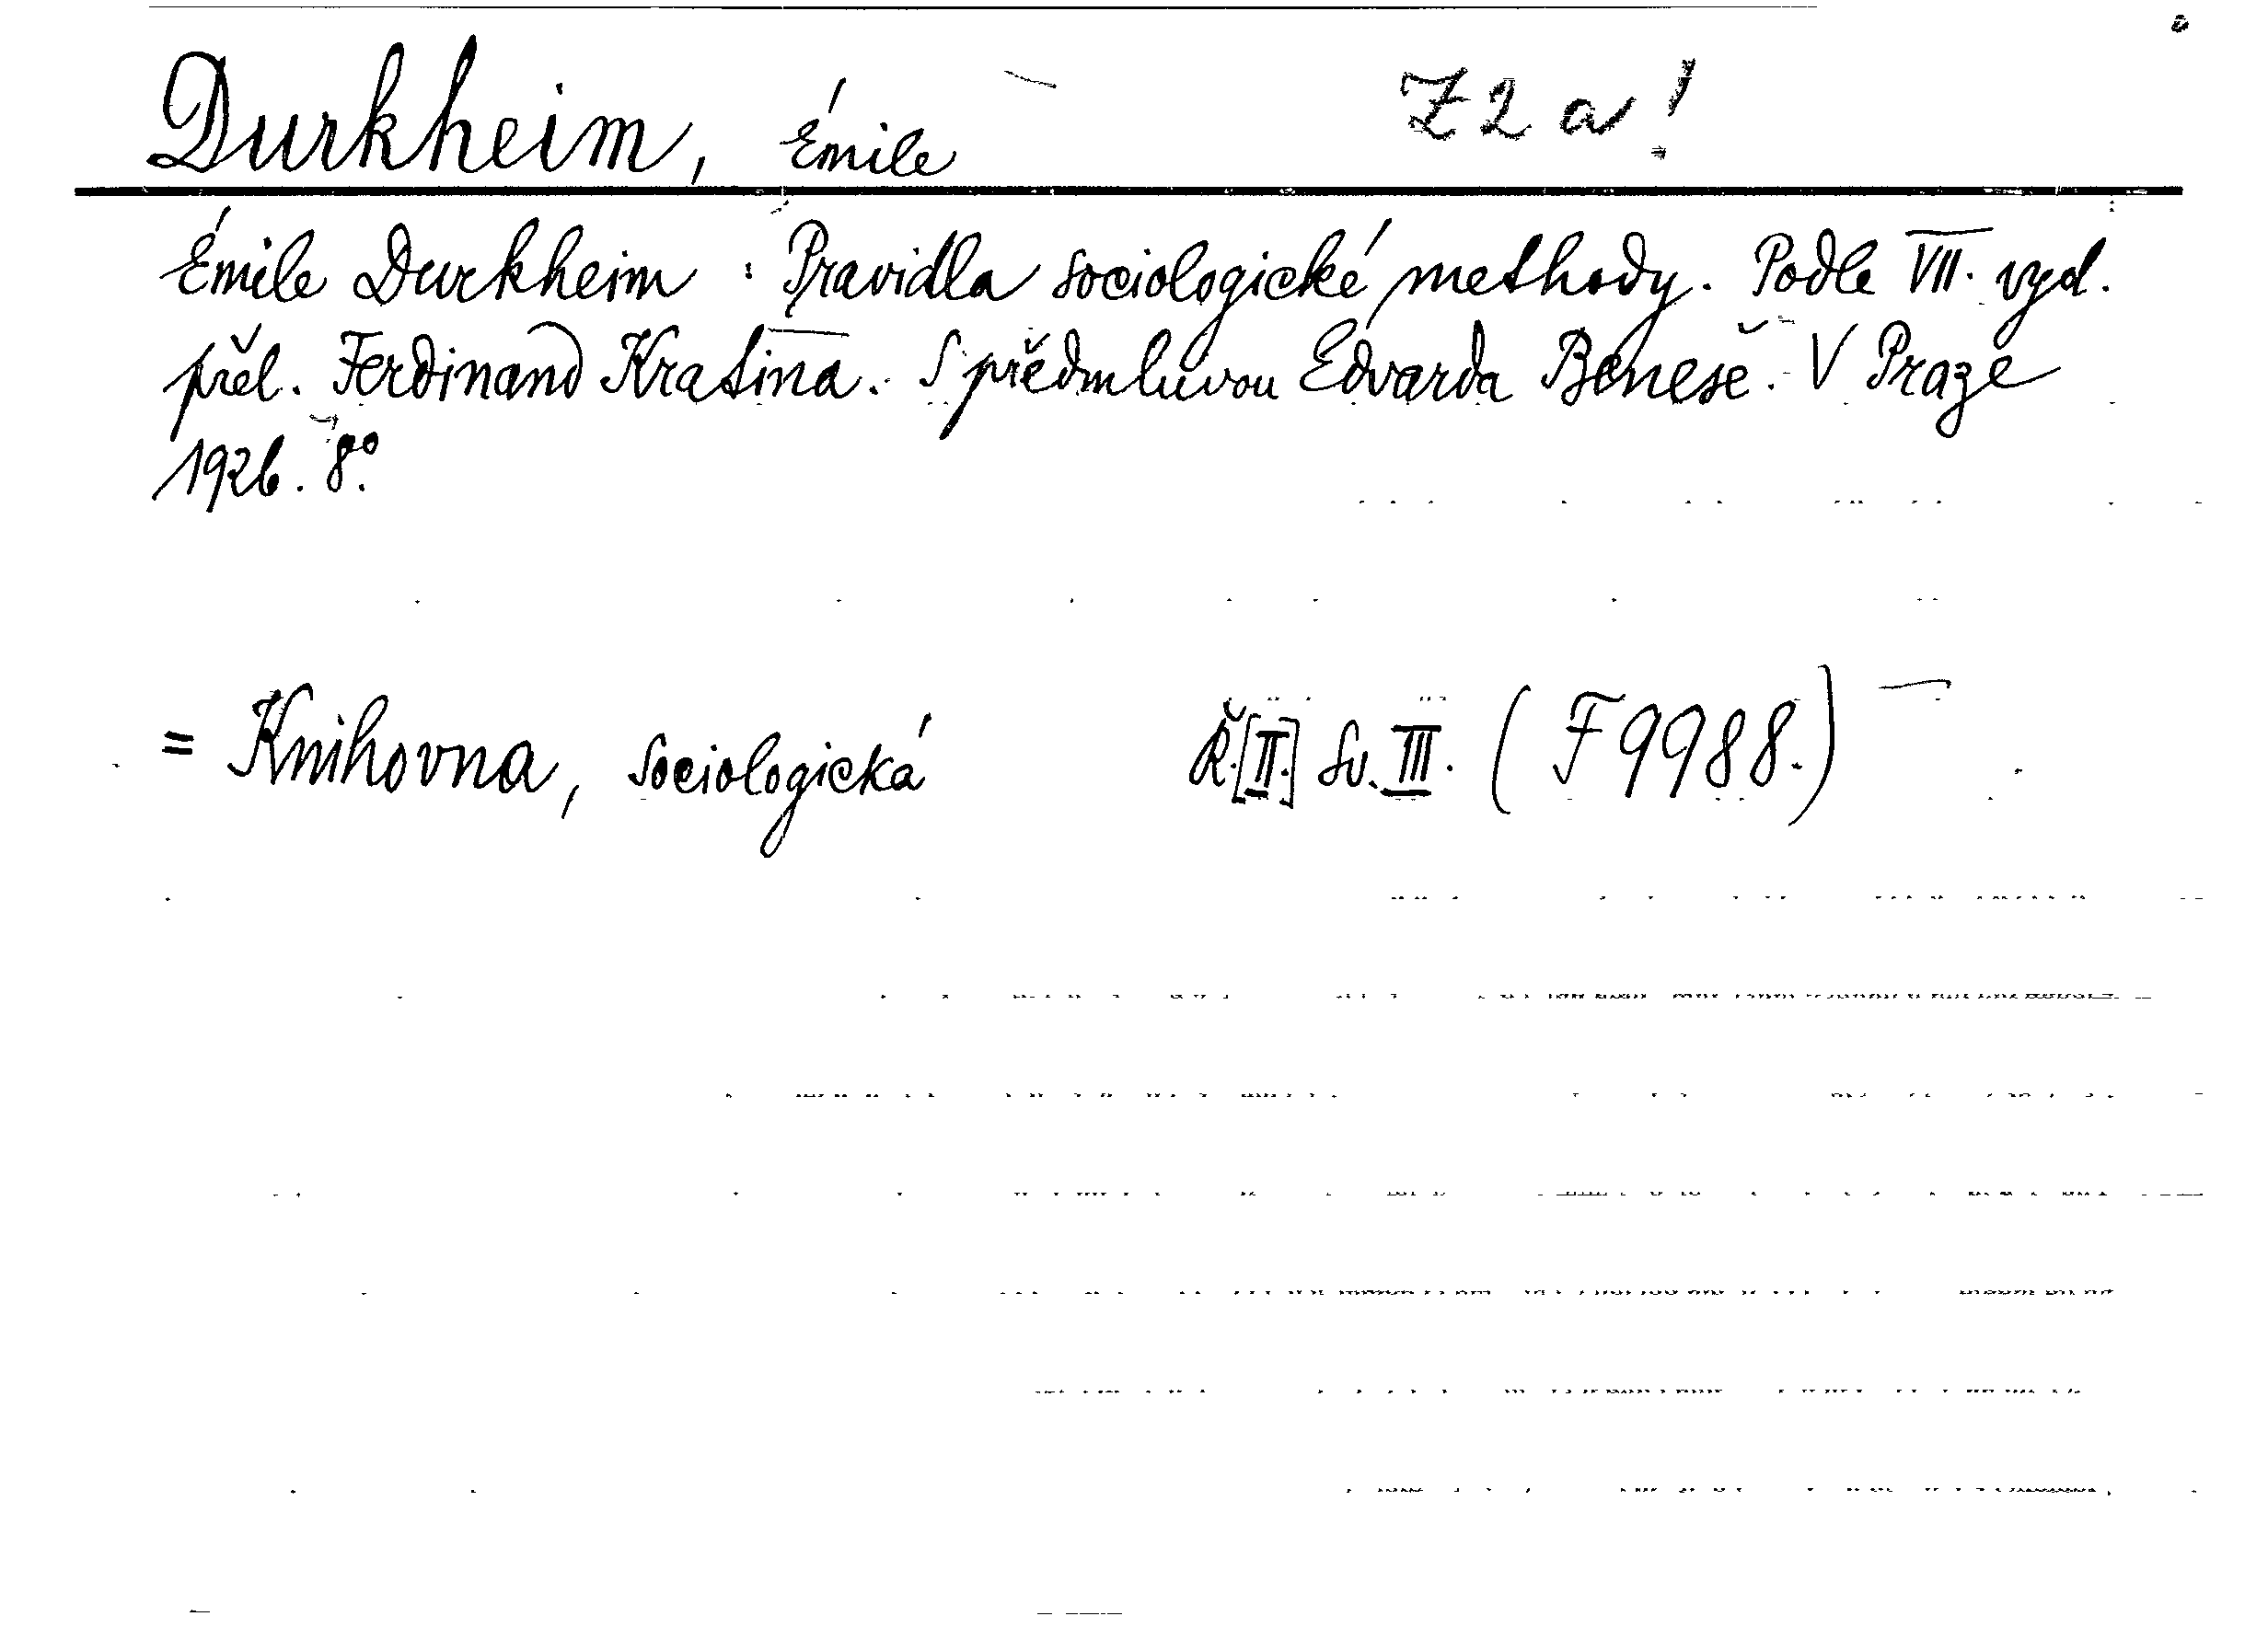 Durkheim, Émile Z 2 a!
Émile Durkheim : Pravidla sociologické methody. Podle VII. vyd.
přel. Ferdinand Kratina. S předmluvou Edvarda Beneše. V Praze
1926. 8°.
= Knihovna, sociologická Ř.[II.] Sv. III. (F 9988.)